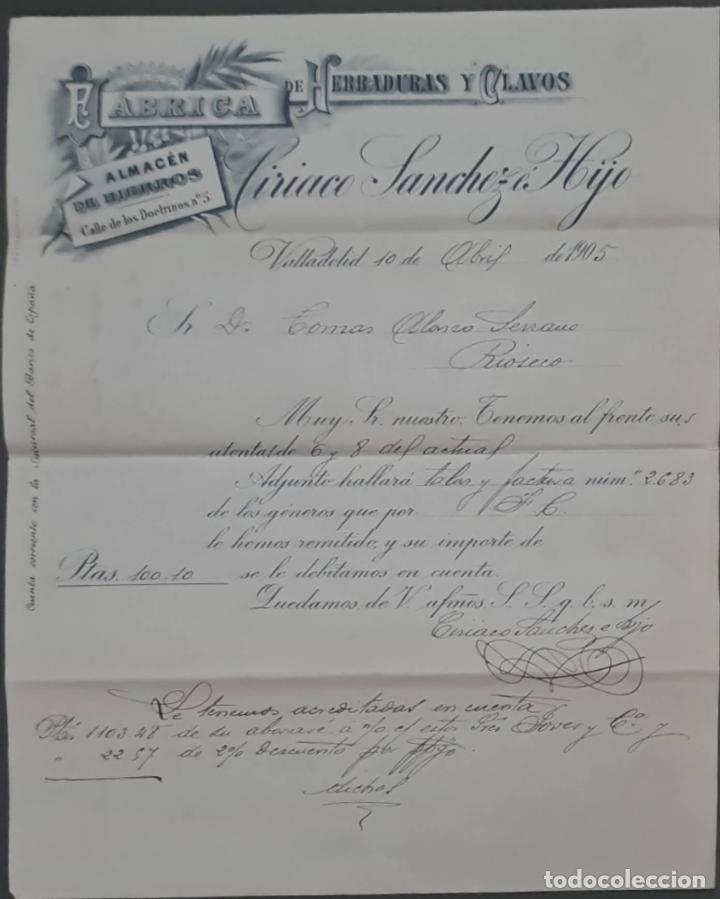 FABRICA DE HERRADURAS Y CLAVOS
ALMACÉN
DE HIERROS
Calle de los Doctrinos, nº 5
Ciriaco Sanchez é Hijo
Valladolid 10 de Abril de 1905
Sr. D. Tomas Alonso Serrano
Rioseco
Cuenta corriente con la Sucursal del Banco de España
Muy Sr. nuestro: Tenemos al frente sus
atentas de 6 y 8 del actual
Adjunto hallará talon y factura núm.º 2.683
de los géneros que por F. C.
le hemos remitido, y su importe de
Ptas. 100.10 se le debitamos en cuenta.
Quedamos de V. afmos. S. S. q. b. s. m,
Ciriaco Sanchez e Hijo
Le tenemos acreditadas en cuenta
Ptas 1103.48 de su abonaré a c/o el estos Sres Jover y Cª. y
" 22.57 de 2% descuento por
dichos
todocoleccion